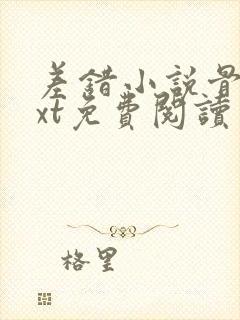 差錯小説骨
xt免費閱讀
格里